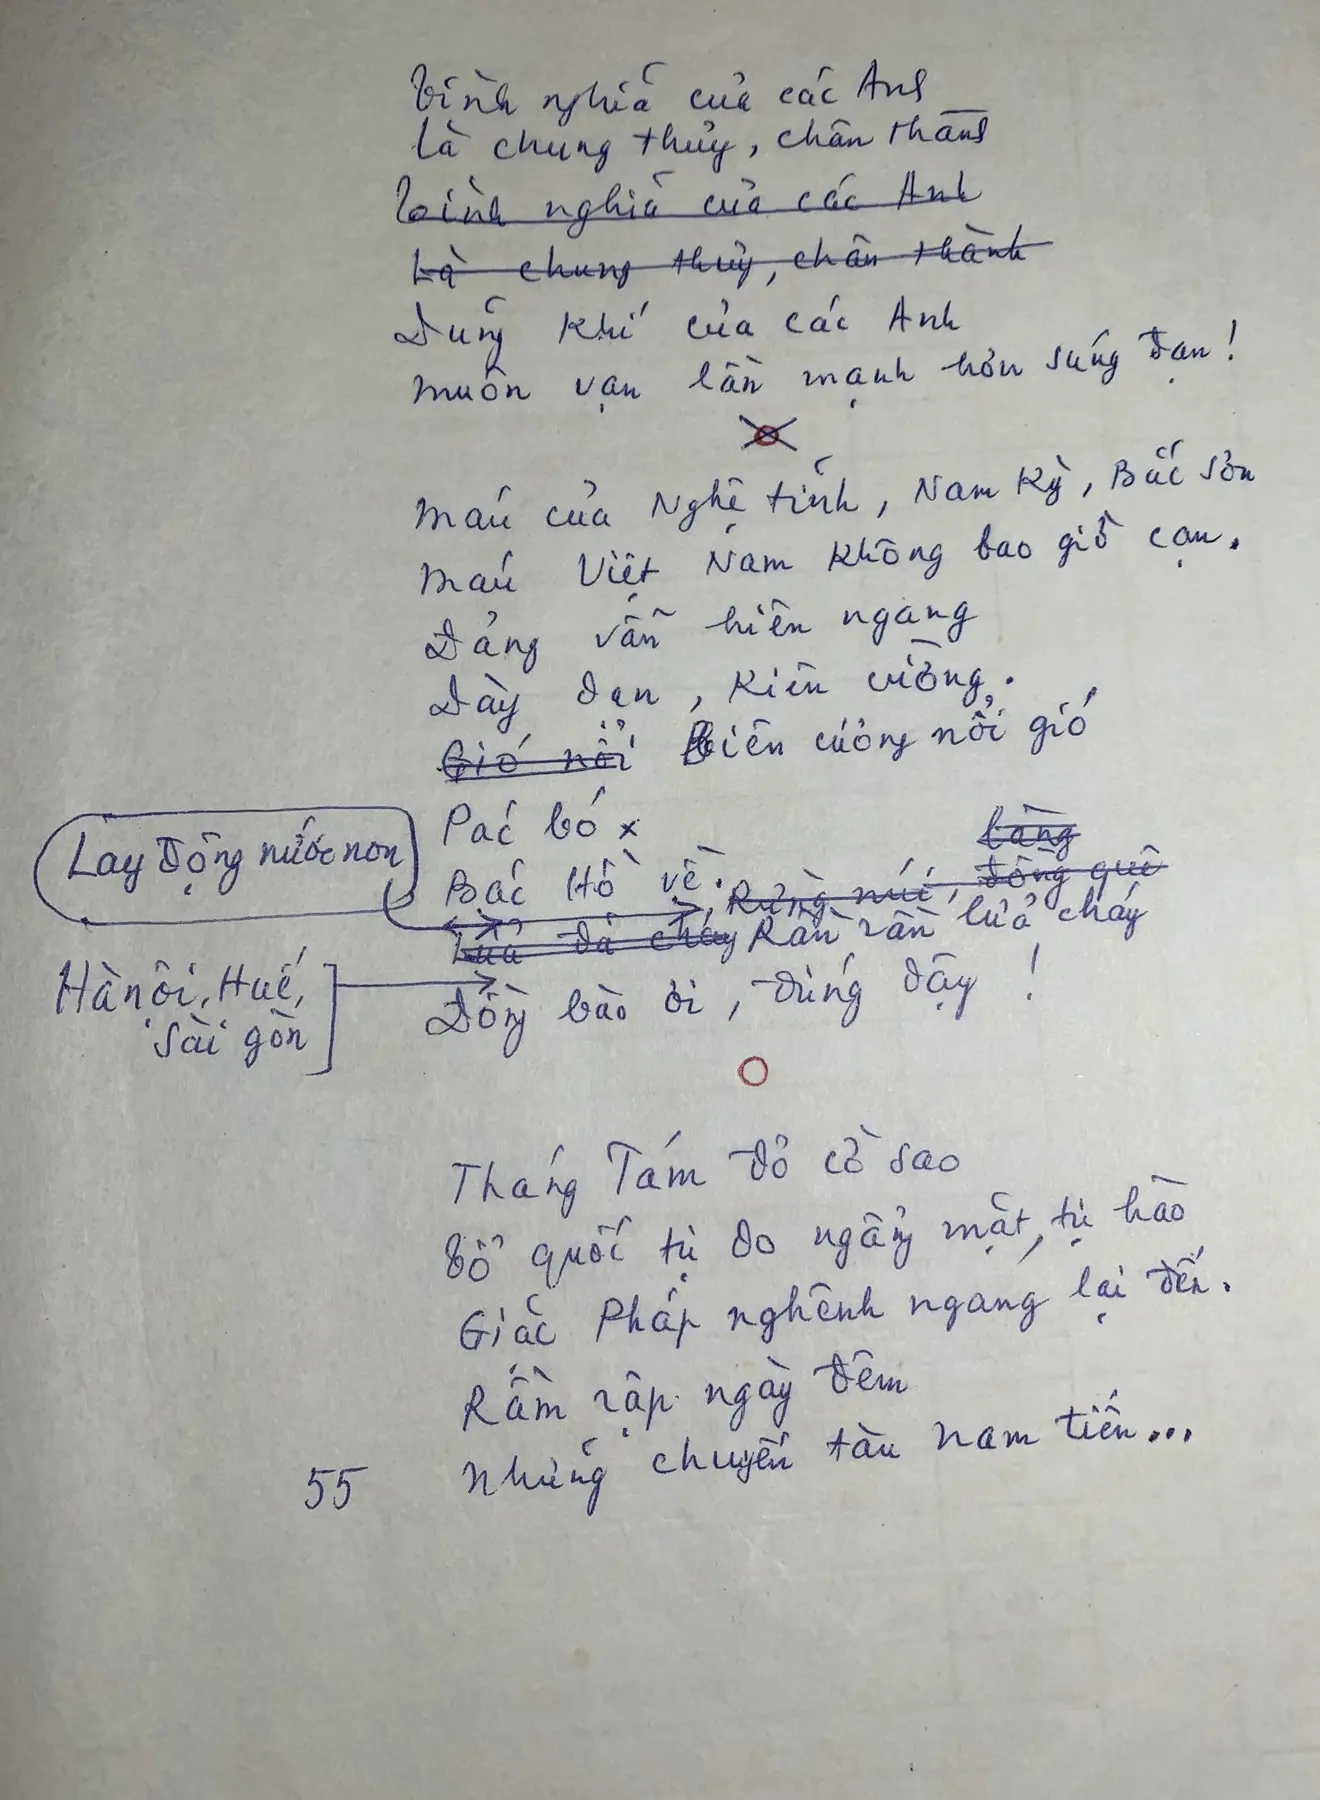 Tình nghĩa của các Anh
Là chung thủy, chân thành
Tình nghĩa của các Anh
Là chung thủy, chân thành
Dũng khí của các Anh
muôn vạn lần mạnh hơn súng đạn!
Máu của Nghệ tĩnh, Nam Kỳ, Bắc Sơn
Máu Việt Nam không bao giờ cạn.
Đảng vẫn hiên ngang
Dày dạn, kiên cường.
Gió nổi Biên cương nổi gió
Pác bó x
làng
Lay động nước non
Bác Hồ về. Rừng núi, đồng quê
Lửa đã cháy Rần rần lửa cháy
Hà nội, Huế,
Sài gòn
Đồng bào ơi, đứng dậy!
Tháng Tám đỏ cờ sao
Tổ quốc tự do ngẩng mặt, tự hào
Giặc Pháp nghênh ngang lại đến.
Rầm rập ngày đêm
Những chuyến tàu nam tiến...
55